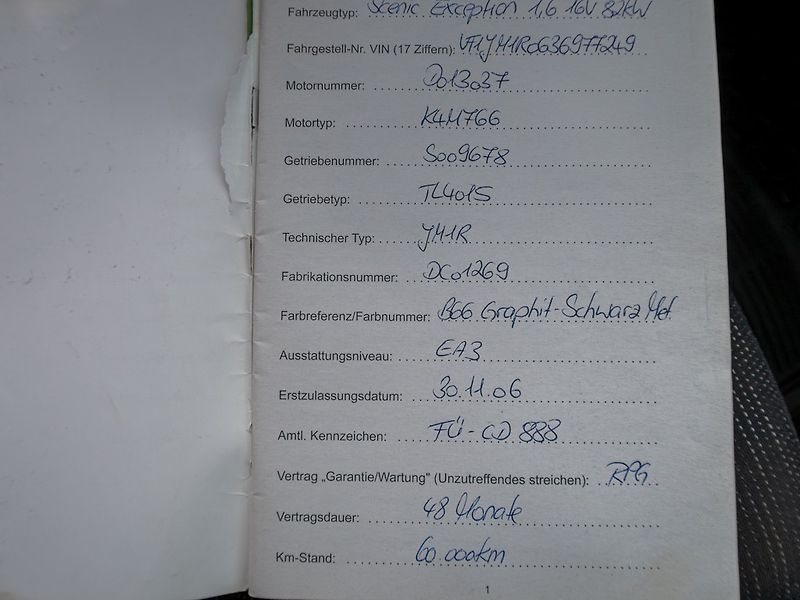 Fahrzeugtyp: Scenic Exception 1,6 16V 82kW
Fahrgestell-Nr. VIN (17 Ziffern): VF1JM1R0636977249
Motornummer: D013037
Motortyp: K4M766
Getriebenummer: S009678
Getriebetyp: TL4015
Technischer Typ: JM1R
Fabrikationsnummer: DC01269
Farbreferenz/Farbnummer: B66 Graphit-Schwarz Met.
Ausstattungsniveau: EA3
Erstzulassungsdatum: 30.11.06
Amtl. Kennzeichen: FÜ-CD 888
Vertrag „Garantie/Wartung" (Unzutreffendes streichen): RPG
Vertragsdauer: 48 Monate
Km-Stand: 60.000km
1